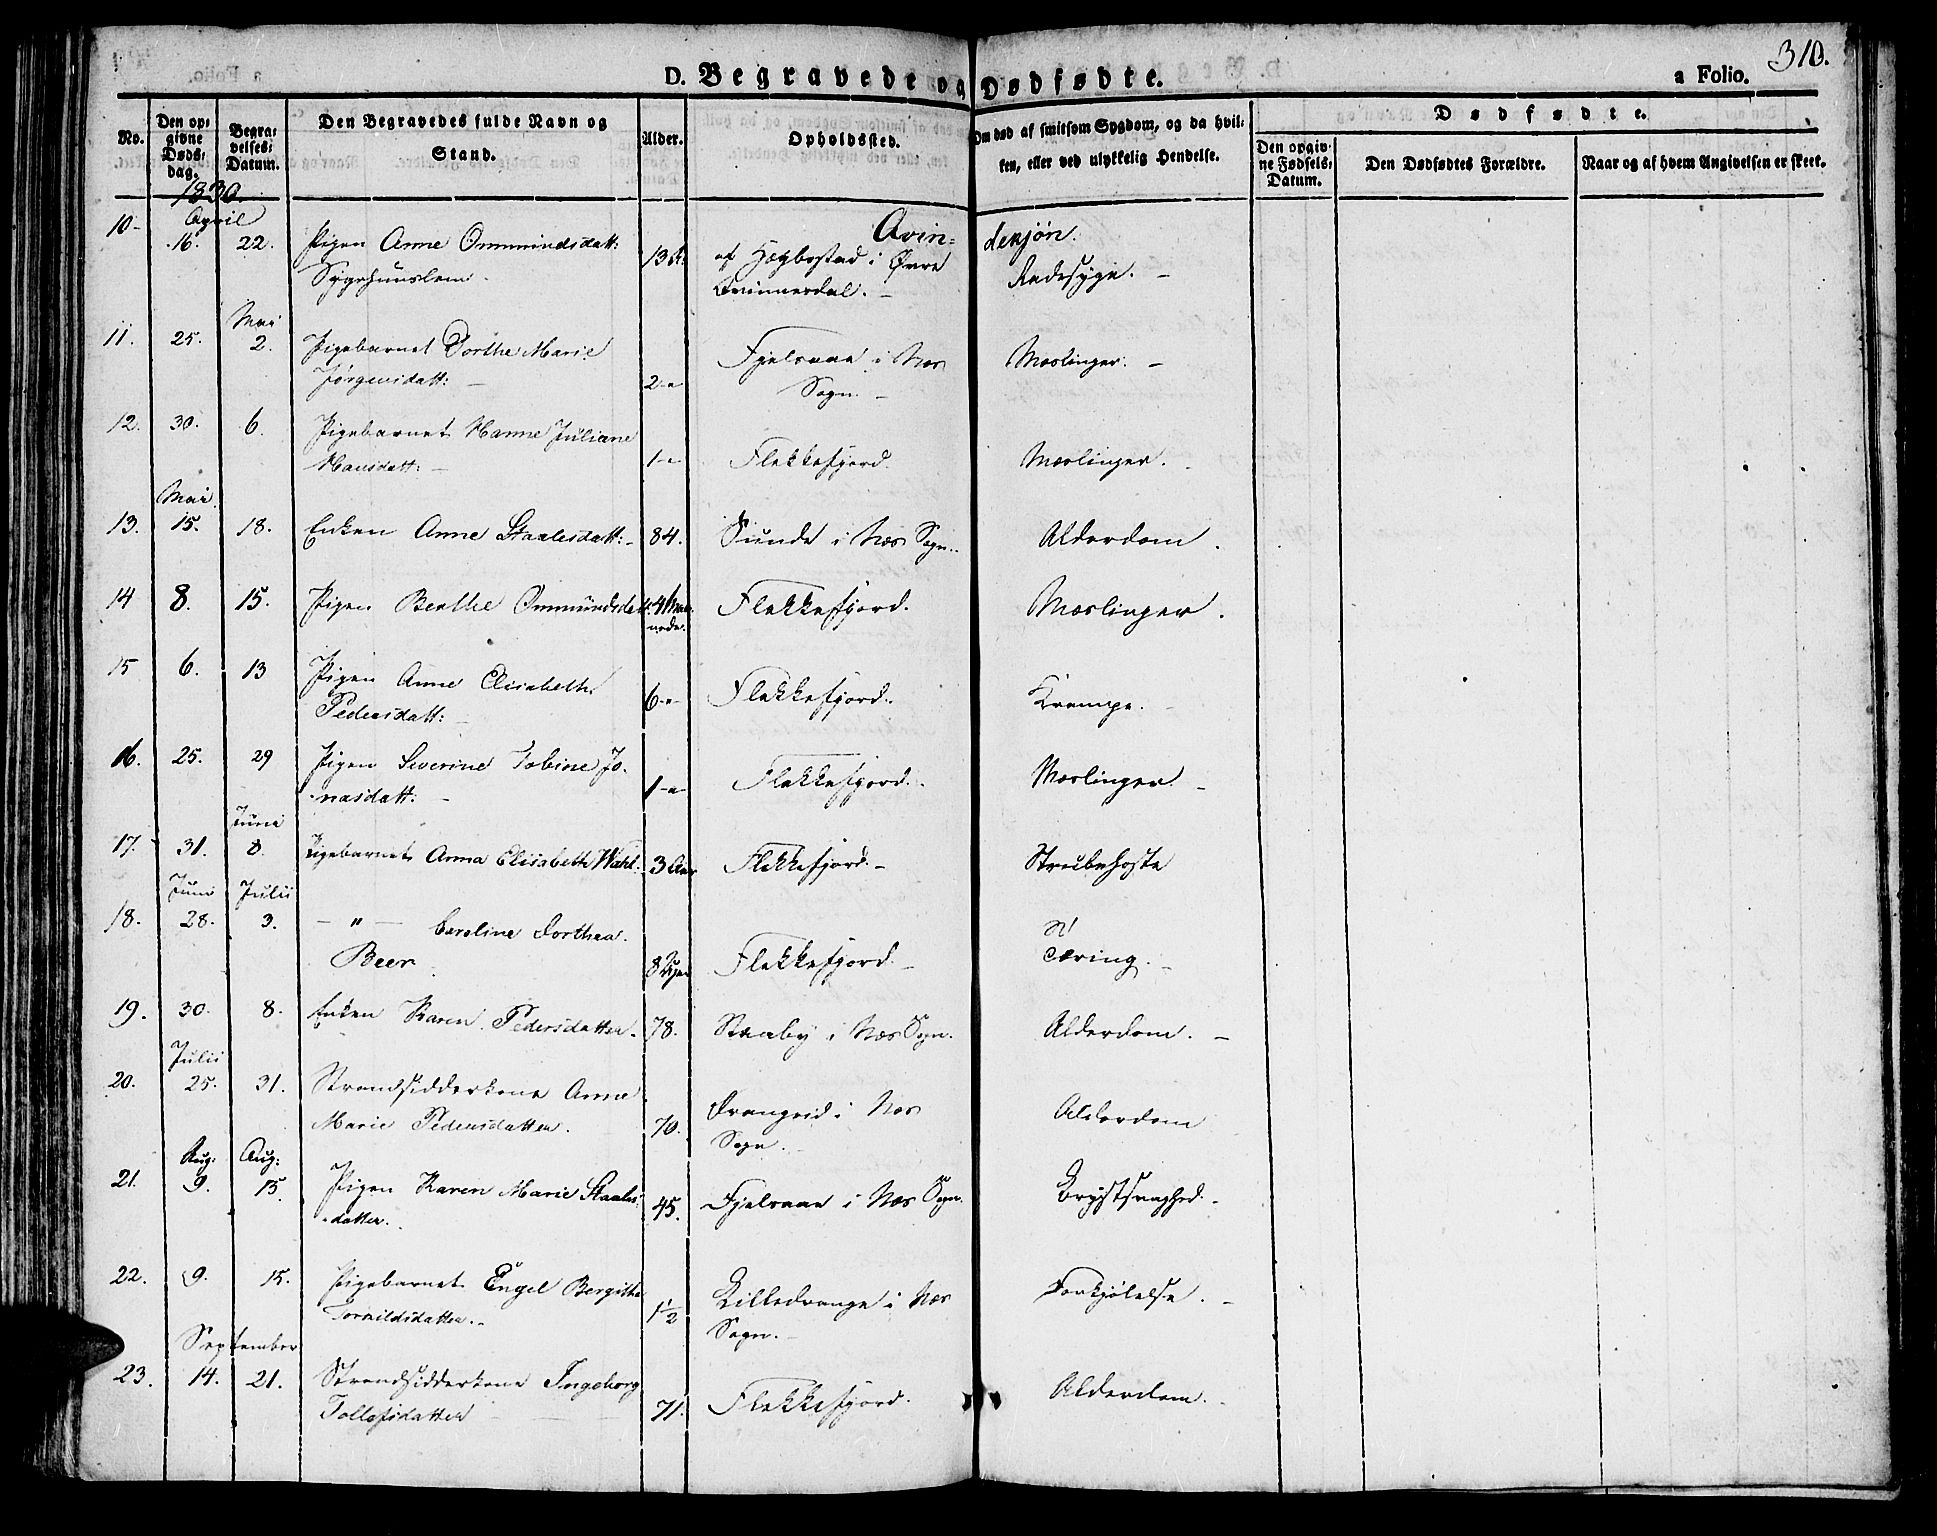 310.
D. Begravede og Dødfødte.
a Folio.
No.
Den op-
givne
Døds-
dag.
Begra-
velses-
Datum.
Den Begravedes fulde Navn og
Stand.
Alder.
Opholdssted.
Om død af smitsom Sygdom, og da hvil-
ken, eller ved ulykkelig Hendelse.
Dødfødte.
Den opgiv-
ne Fødsels-
Datum.
Den Dødfødtes Forældre.
Naar og af hvem Angivelsen er skeet.
1830.
April
Qvin=
dekjøn.
10- 16. 22. Pigen Anne Ommundsdatt: 13 af Hægbostad i Øvre Radesyge. -
Sygehuuslem - Qvinnesdal. -
Mai
11. 25. 2. Pigebarnet Dorthe Marie Fjelsaae i Næs Mæslinger. -
Jørgensdatt: - 2-"- Sogn. -
12. 30. 6. Pigebarnet Hanne Juliane
Hansdatt: - 1-"- Flekkefjord. Mæslinger. -
Mai
13. 15. 18. Enken Anne Staalesdatt: - 84. Sunde i Næs Sogn. Alderdom.
14 8. 15. Pigen Berthe Ommundsdatt 4 Maa- Flekkefjord. Mæslinger.
neder.
15 6. 13 Pigen Anne Elisabeth
Pedersdatt: - 6-"- Flekkefjord. Krampe. -
16. 25. 29 Pigen Severine Tobine Jo-
nasdatt: - 1-"- Flekkefjord. Mæslinger. -
Juni
17. 31. 8. Pigebarnet Anna Elisabeth Wahl. 3 Aar Flekkefjord. - Strubehoste
Juni Julii
18. 28. 3. - " - Caroline Dorthea
Beer 8 Flekkefjord. - Tæring. -
19. 30. 8. Enken Karen Pedersdatter. 78. Staaby i Næs Sogn. Alderdom. -
Julii
20. 25. 31. Strandsidderkone Anne
Marie Pedersdatter. 70. Drangeid i Næs Alderdom
Sogn. -
Aug: Aug:
21. 9. 15. Pigen Karen Marie Staales-
datter. 45. Fjelsaae i Næs Sogn. Brystsvaghed. -
22. 9. 15. Pigebarnet Engel Bergitha
Torkildsdatter. - 1½ Lilledrange i Næs Forkjølelse. -
Sogn. -
September
23. 14. 21. Strandsidderkone Ingeborg
Tollefsdatter 71. Flekkefjord. Alderdom. -